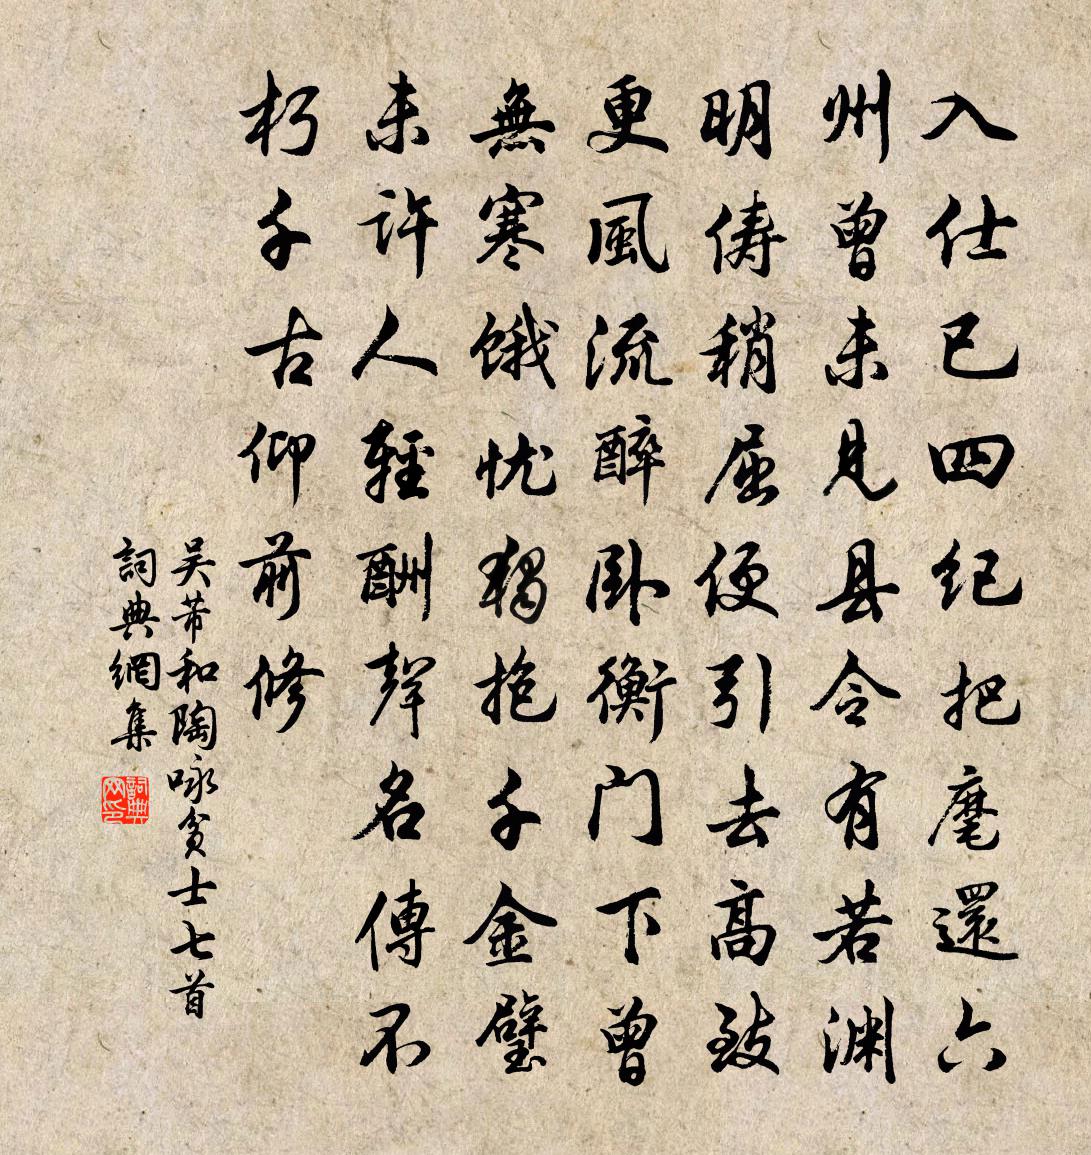 入仕已四纪把麾還六
州曾未見县令有若渊
明俦稍屈便引去高致
更風流醉卧衡门下曾
無寒饿忧独抱千金璧
未许人輕酬聲名傳不
朽千古仰前修
吴芾和陶咏贫士七首
詞典網集
詞典网印